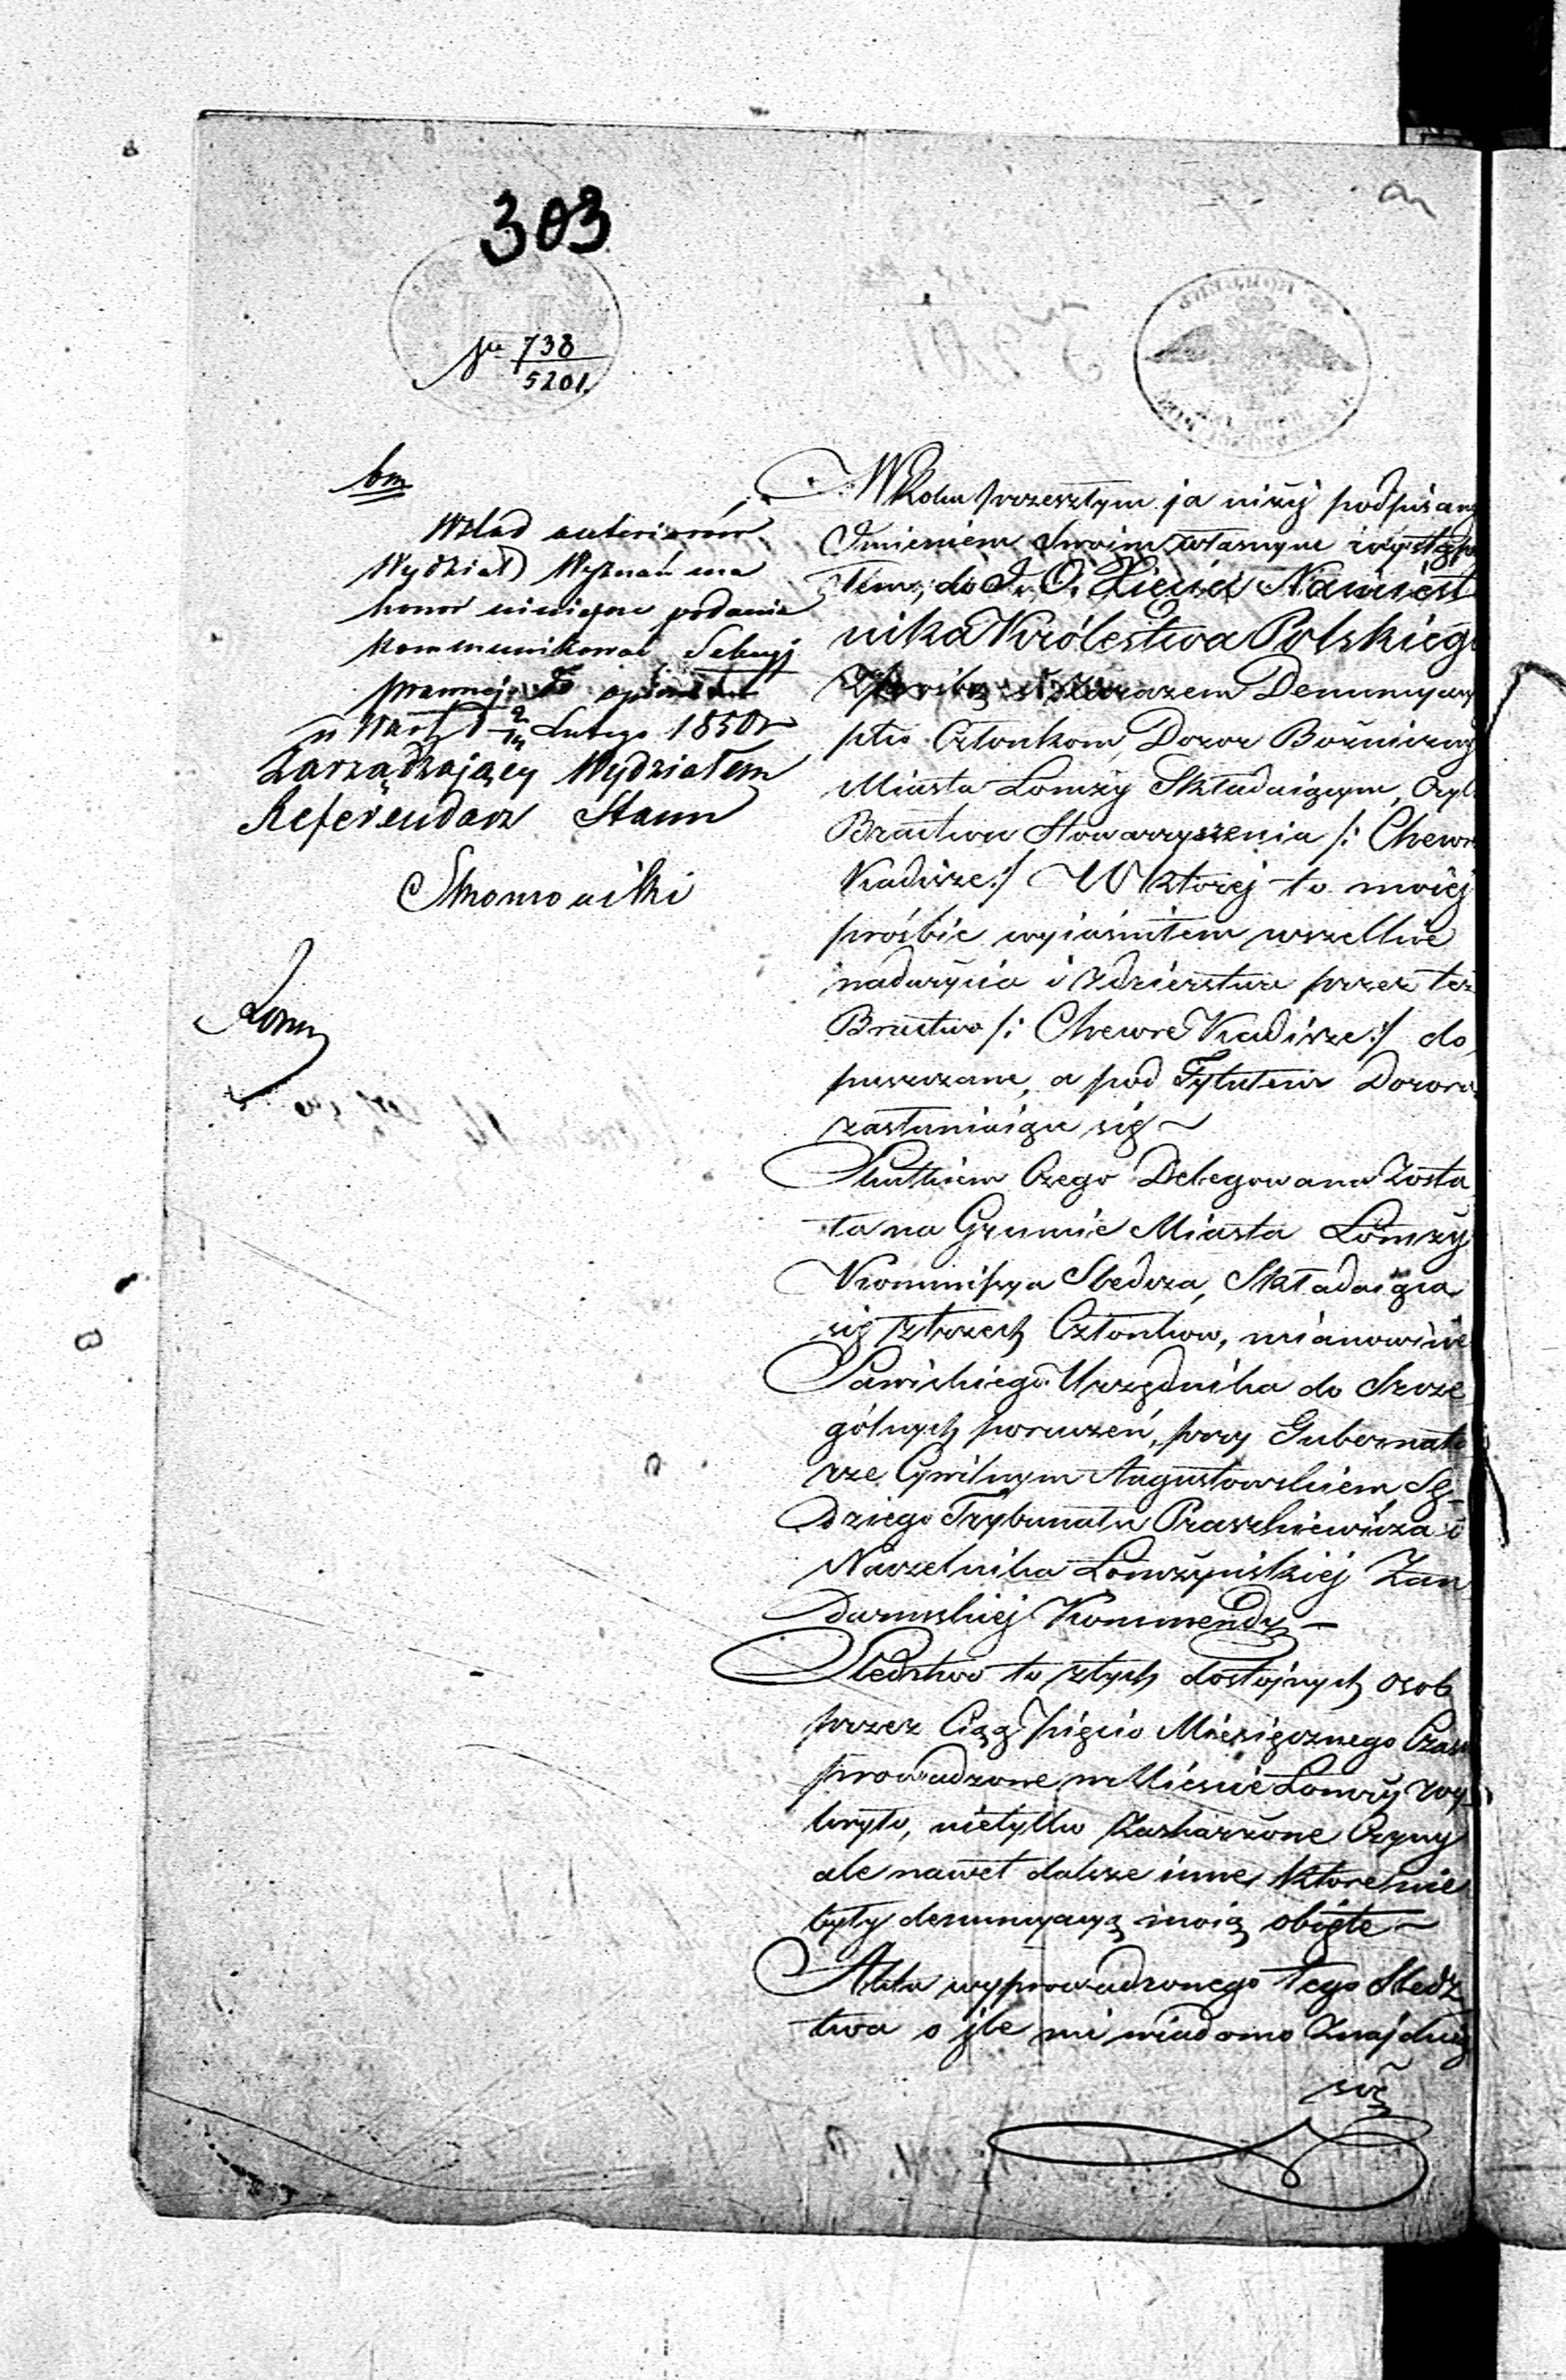 303
738
5201.
bm
W ślad anteriorów
Wydział Wyznań ma
honor niniejsze podanie
kommunikować Sekcyj
prawnej
w Warsz. d 2/14 Lutego 1850 r
Zarządzający Wydziałem
Referendarz Stanu
W Roku przeszłym ja niżej podpisany
Imieniem swoim własnym wystąpi
łem, do J. O. Xięcia Namiest
nika Królestwa Polskiego
Zprośbą i Zarazem Denuncyacyą
ptko Członkom, Dozor Bożniczny
Miasta Łomży Składaiącym, Czyli
Bractwu Stowarzyszenia /: Chewre
Kadisze :/ W Ktorej to moiej
prośbie wyiaśniłem wszelkie
nadużycia i zdzierstwa przez też
Bractwo /: Chewre Kadisze :/ do
puszczane, a pod Tytułem Dozoru
zasłaniaiące się ~
Skutkiem Czego Delegowana Zosta
ła na Gruncie Miasta Łomży
Kommissya Śledcza, Składaiąca
się ztrzech Członków, mianowicie
Sawickiego Urzędnika do Szcze
gólnych poruczeń, przy Gubernato
rze Cywilnym Augustowskiem, Sę
dziego Trybunału Praszkiewicza i
Naczelnika Łomżyńskiej Żan
darmskiej Kommendy —
Śledztwo to ztych dostojnych osob
przez Ciąg pięcio Miesięcznego Czasu
prowadzone w Mieście Łomży wy
kryło, nietylko Zaskarżone Czyny
ale nawet dalsze inne, Które nie
były denuncyacyą moią objęte ~
Akta wyprowadzonego tego Śledz
twa o jle mi wiadomo Znajduią
się